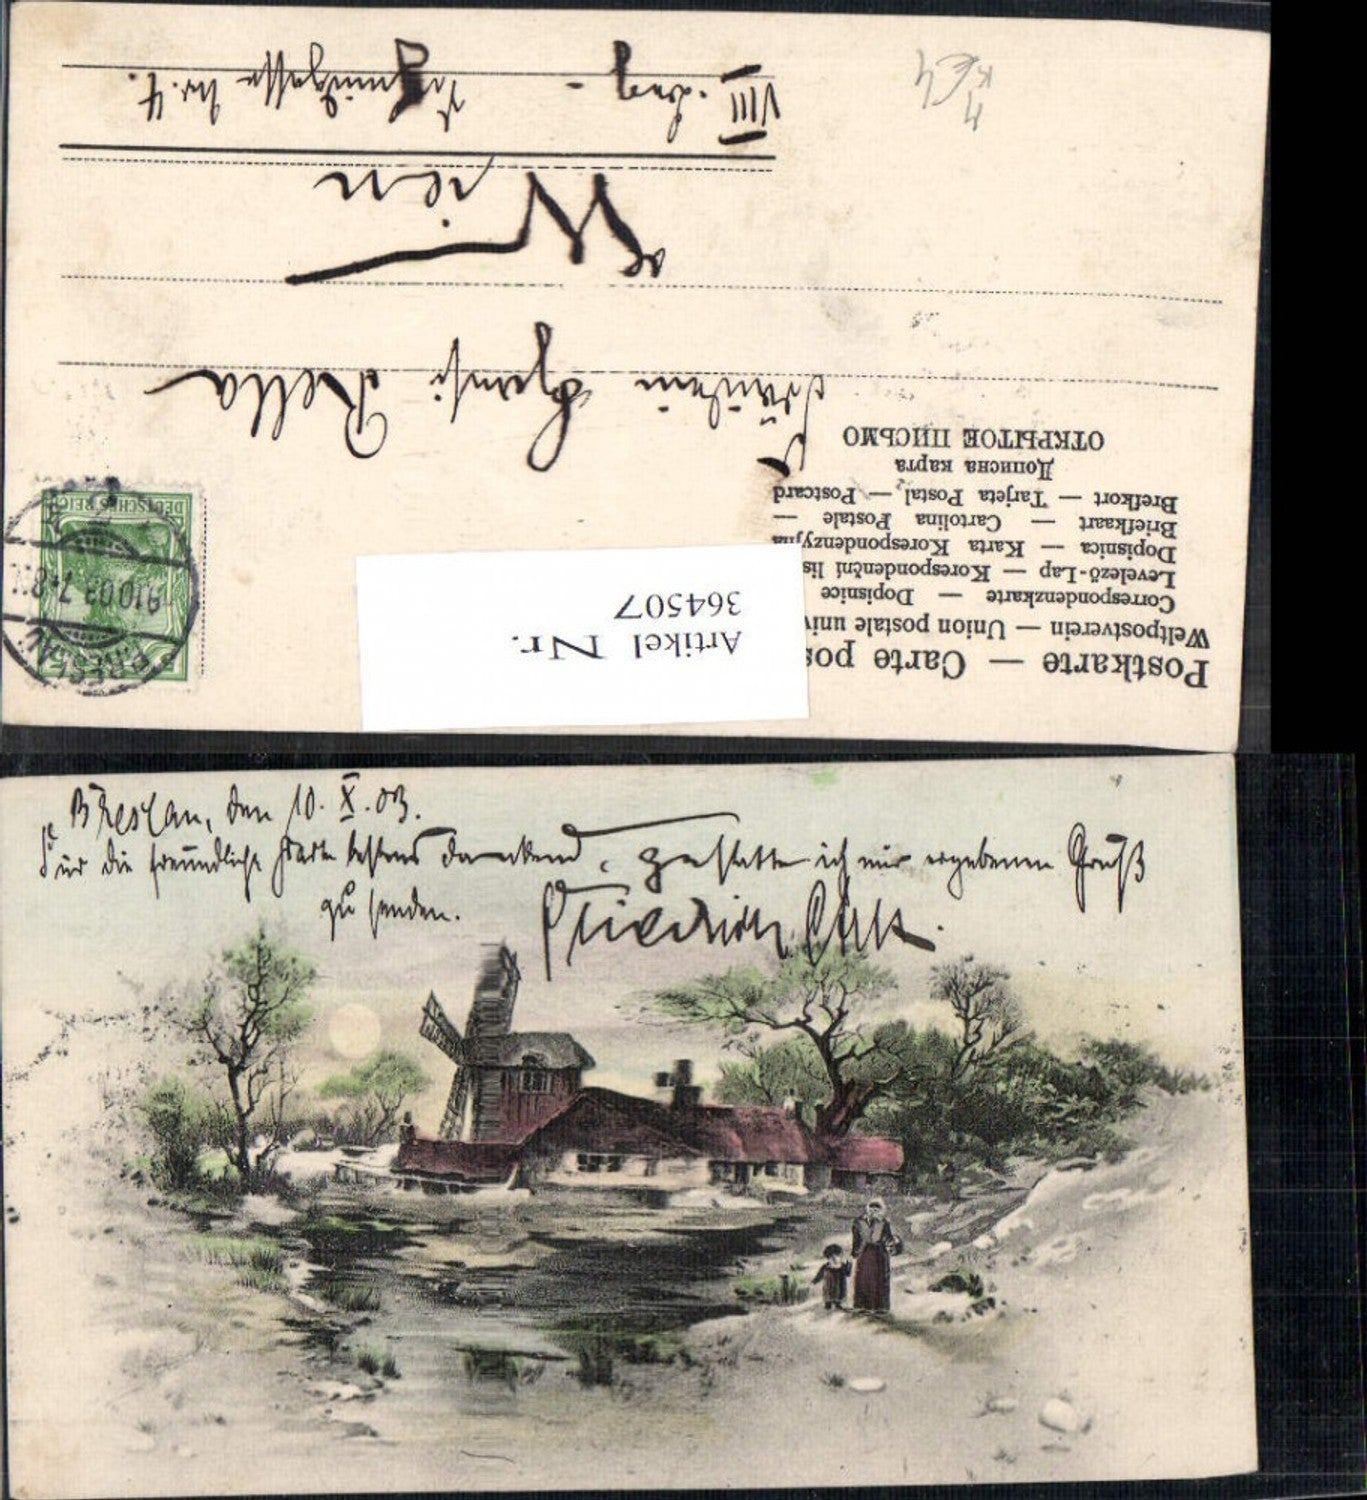 Postkarte — Carte pos
Weltpostverein — Union postale univ
Correspondenzkarte — Dopisnice
Levelező-Lap — Korespondenční lis
Dopisnica — Karta Korespondenzyjna
Briefkaart — Cartolina Postale —
Brefkort — Tarjeta Postal, — Postcard
Дописна карта
ОТКРЫТОЕ ПИСЬМО
Artikel Nr.
364507
DEUTSCHES REICH
BRESLAU
Fräulein Rella
Wien
VIII. Nr. 4.
Breslau, den 10. X. 03.
Für die freundliche Karte bestens dankend, gestatte ich mir ergebenen Gruß
zu senden. Friedrich